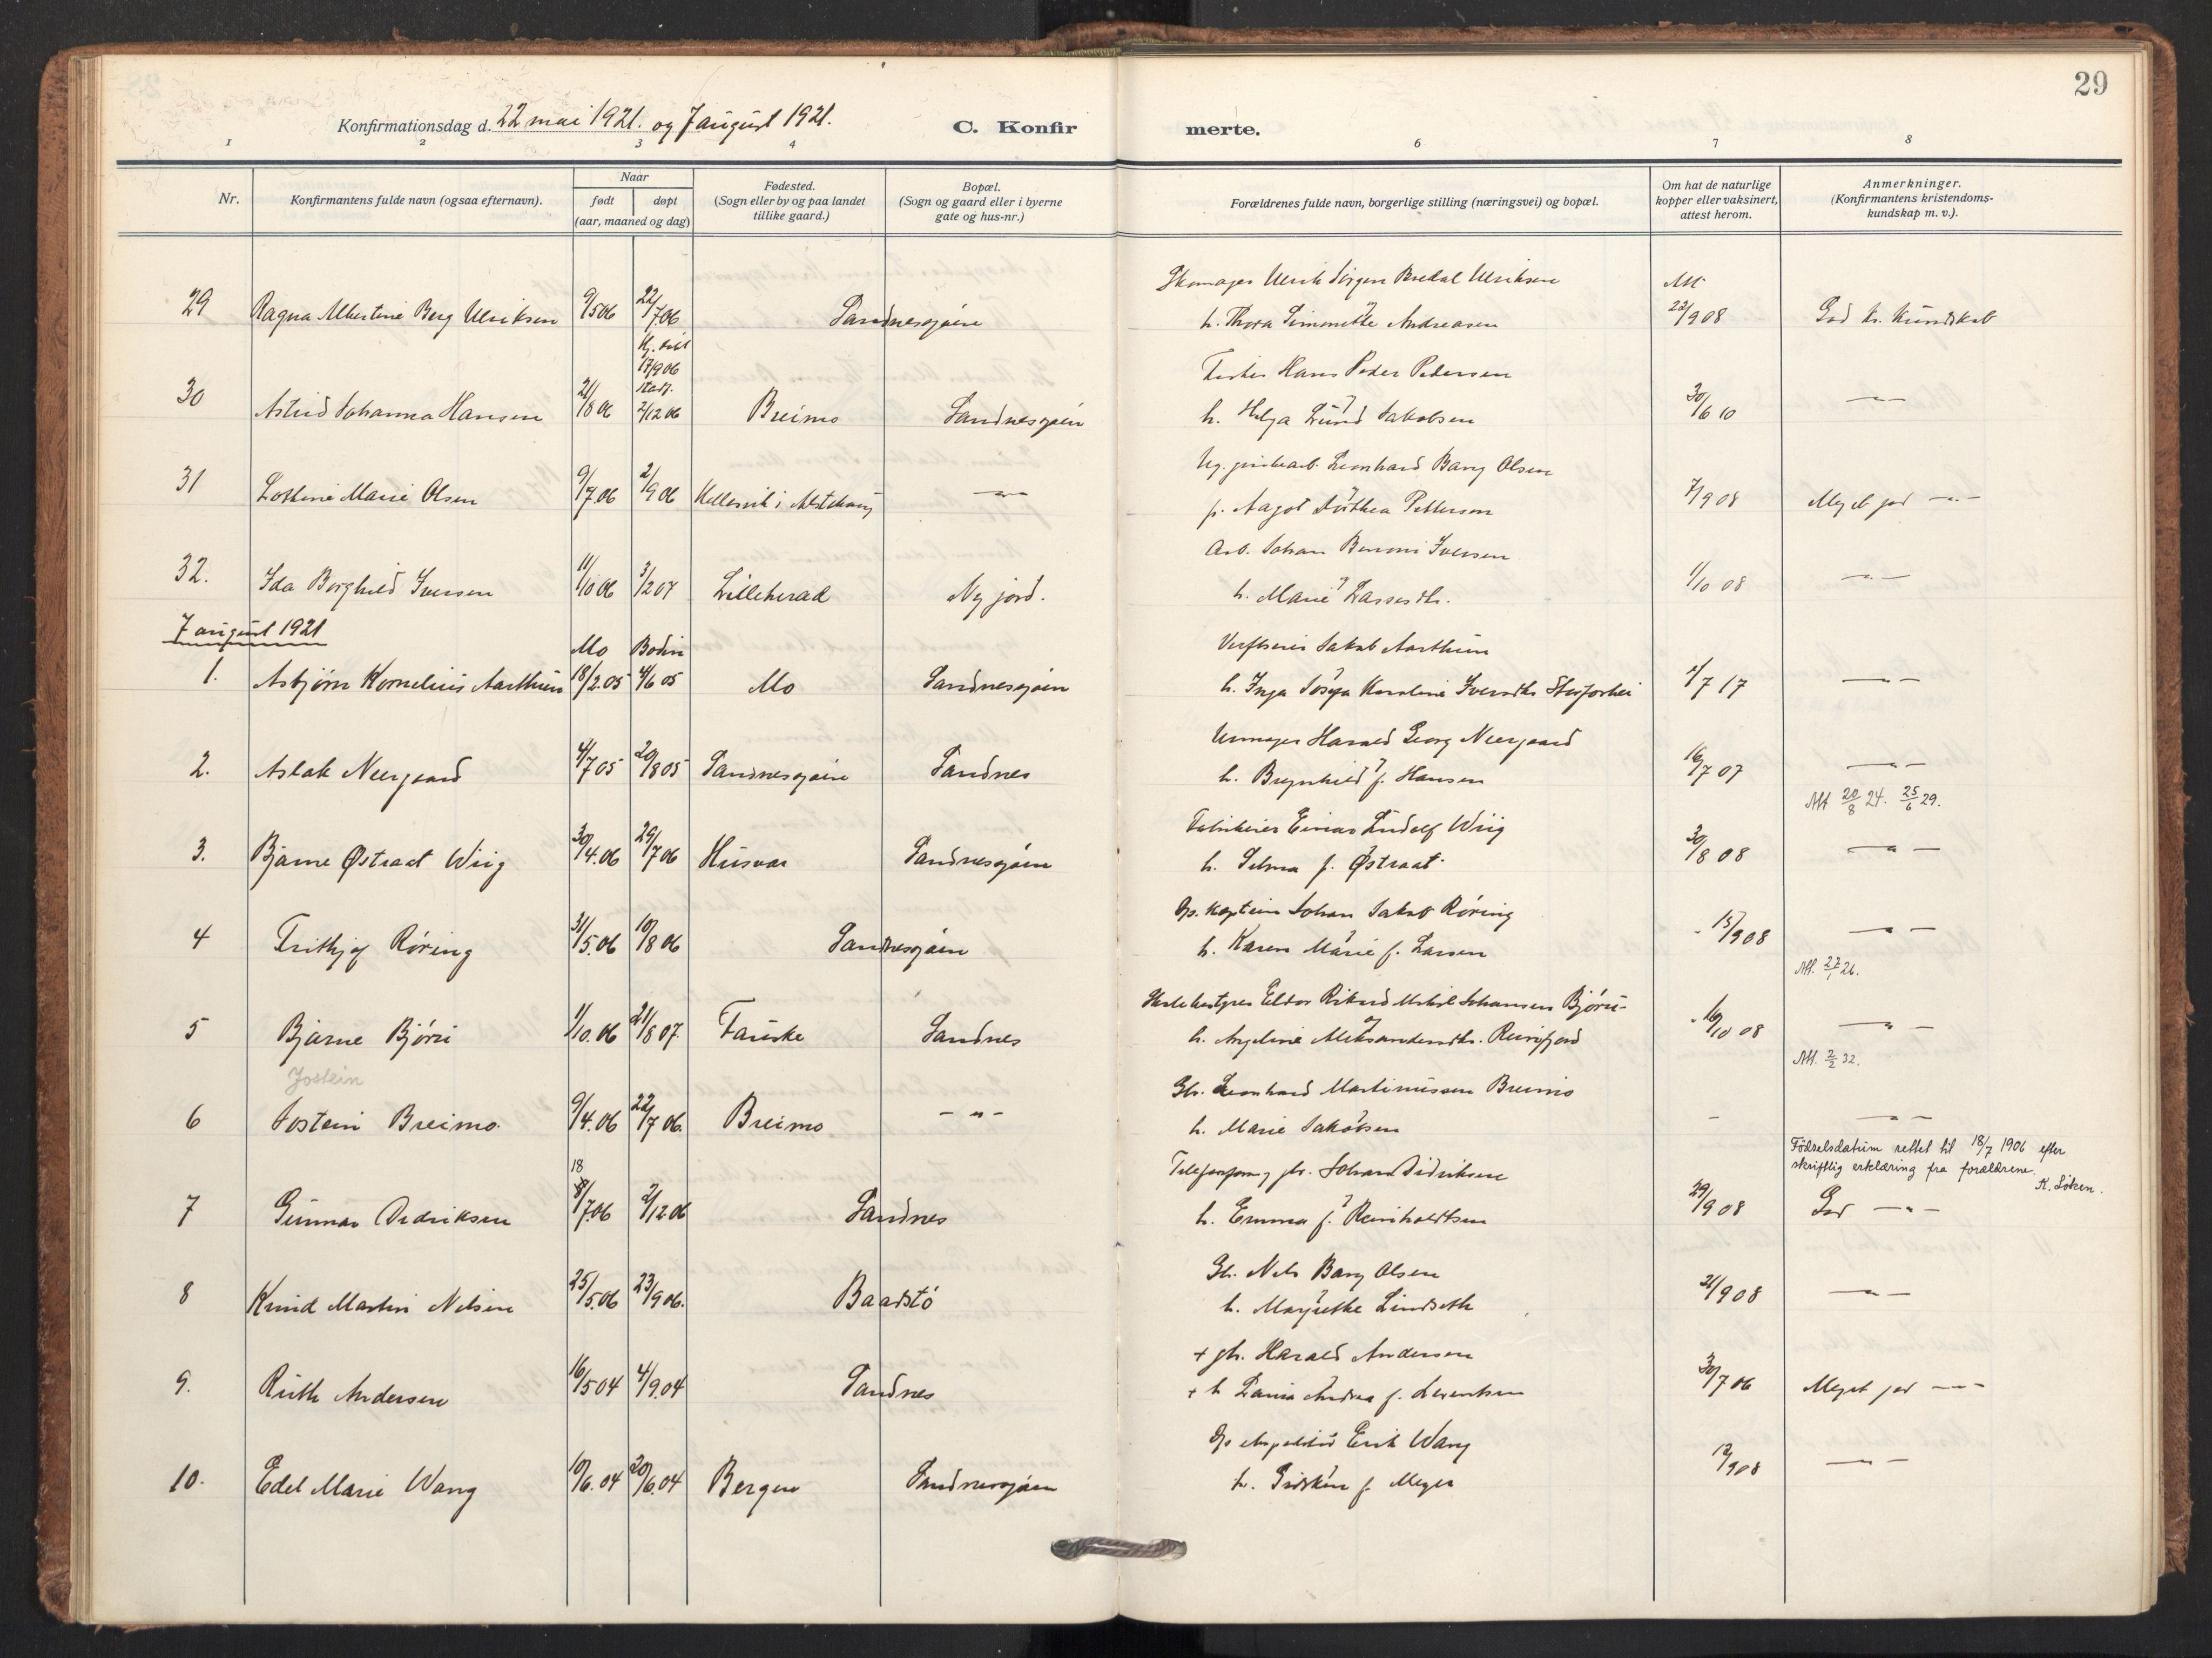 29
Konfirmationsdag d. 22 mai 1921. og 7 august 1921.
C. Konfirmerte.
1 2 3 4 6 7 8
Nr.
Konfirmantens fulde navn (ogsaa efternavn).
Naar
født
døpt
(aar, maaned og dag)
Fødested.
(Sogn eller by og paa landet
tillike gaard.)
Bopæl.
(Sogn og gaard eller i byerne
gate og hus-nr.)
Forældrenes fulde navn, borgerlige stilling (næringsvei) og bopæl.
Om hat de naturlige
kopper eller vaksinert,
attest herom.
Anmerkninger.
(Konfirmantens kristendoms-
kundskap m. v.).
Skomager Ulrik Jørgen Bredal Ulriksen
Att
29 Ragna Albertine Berg Ulriksen 9/5 06 22/7 06 Sandnessjøen h. Thora Simonette Andreasen 22/9 08 God kr. kundskab
Hj. døbt
17/9 06
stadf.
Fisker Hans Peder Pedersen
30 Astrid Johanna Hansen 21/8 06 2/12 06 Breimo Sandnessjøen h. Helga Lund Jakobsen 30/6 10 — " —
Ug. Leonhard Bang Olsen
31 Lottine Marie Olsen 9/7 06 2/9 06 i Alstahaug — " — p. Aagot Dorthea Pettersen 7/9 08 Meget god — " —
Arb. Johan Benoni Iversen
32. Ida Borghild Iversen 11/10 06 3/2 07 Lilleherad Nyjord. h. Marie Lassesdtr. 1/10 08 — " —
7 august 1921
Mo Bodin
Jakob Aarthun
1. Asbjørn Kornelius Aarthun 18/2 05 4/6 05 Mo Sandnessjøen h. Inga Josefa Karoline Iversdtr. 2/7 17 — " —
Urmager Harald Georg Neergaard
2. Aslak Neergaard 4/7 05 20/8 05 Sandnessjøen Sandnes h. Brynhild f. Hansen 16/7 07 — " —
Att 20/8 24. 25/6 29.
Fabrikeier Einar Ludolf Wiig
3. Bjarne Østraat Wiig 30/4.06 29/7 06 Husvær Sandnessjøen h. Selma f. Østraat. 30/8 08 — " —
Gp. kaptein Johan Jakob Røring
4 Frithjof Røring 31/5.06 10/8 06 Sandnessjøen h. Karen Marie f. Larsen 15/9 08 — " —
Att. 27/1 26.
Skolebestyrer Eldor Rikard Mikal Johansen Bjøru
5 Bjarne Bjøru 1/10.06 21/8 07. Fauske Sandnes h. Angeline Aleksandersdtr. 16/10 08 — " —
Att. 2/2 32.
Jostein
Gbr. Leonhard Martinussen Breimo
6 Jostein Breimo. 9/4.06 22/7 06. Breimo — " — h. Marie Jakobsen - — " —
Fødselsdatum rettet til 18/7 1906 efter
skriftlig erklæring fra forældrene.
K. Løken.
18
Johan Didriksen
7 Gunnar Didriksen 8/7.06 2/12 06 Sandnes h. Emma f. Reinholdtsen 29/9 08 God — " —
Gb. Nels Bang Olsen
8 Knud Martin Nilsen 25/5.06 23/9 06. Baadstø h. Margrethe Lindseth 21/9 08 — " —
+ gb. Harald Andersen
9. Ruth Andersen 16/5 04 4/9.04 Sandnes + h Andrea f. Lorentsen 30/7 06 Meget god — " —
Gp Erik Wang
10. Edel Marie Wang 10/6.04 20/6.04 Bergen Sandnessjøen h. f. Meyer 12/9 08 — " —